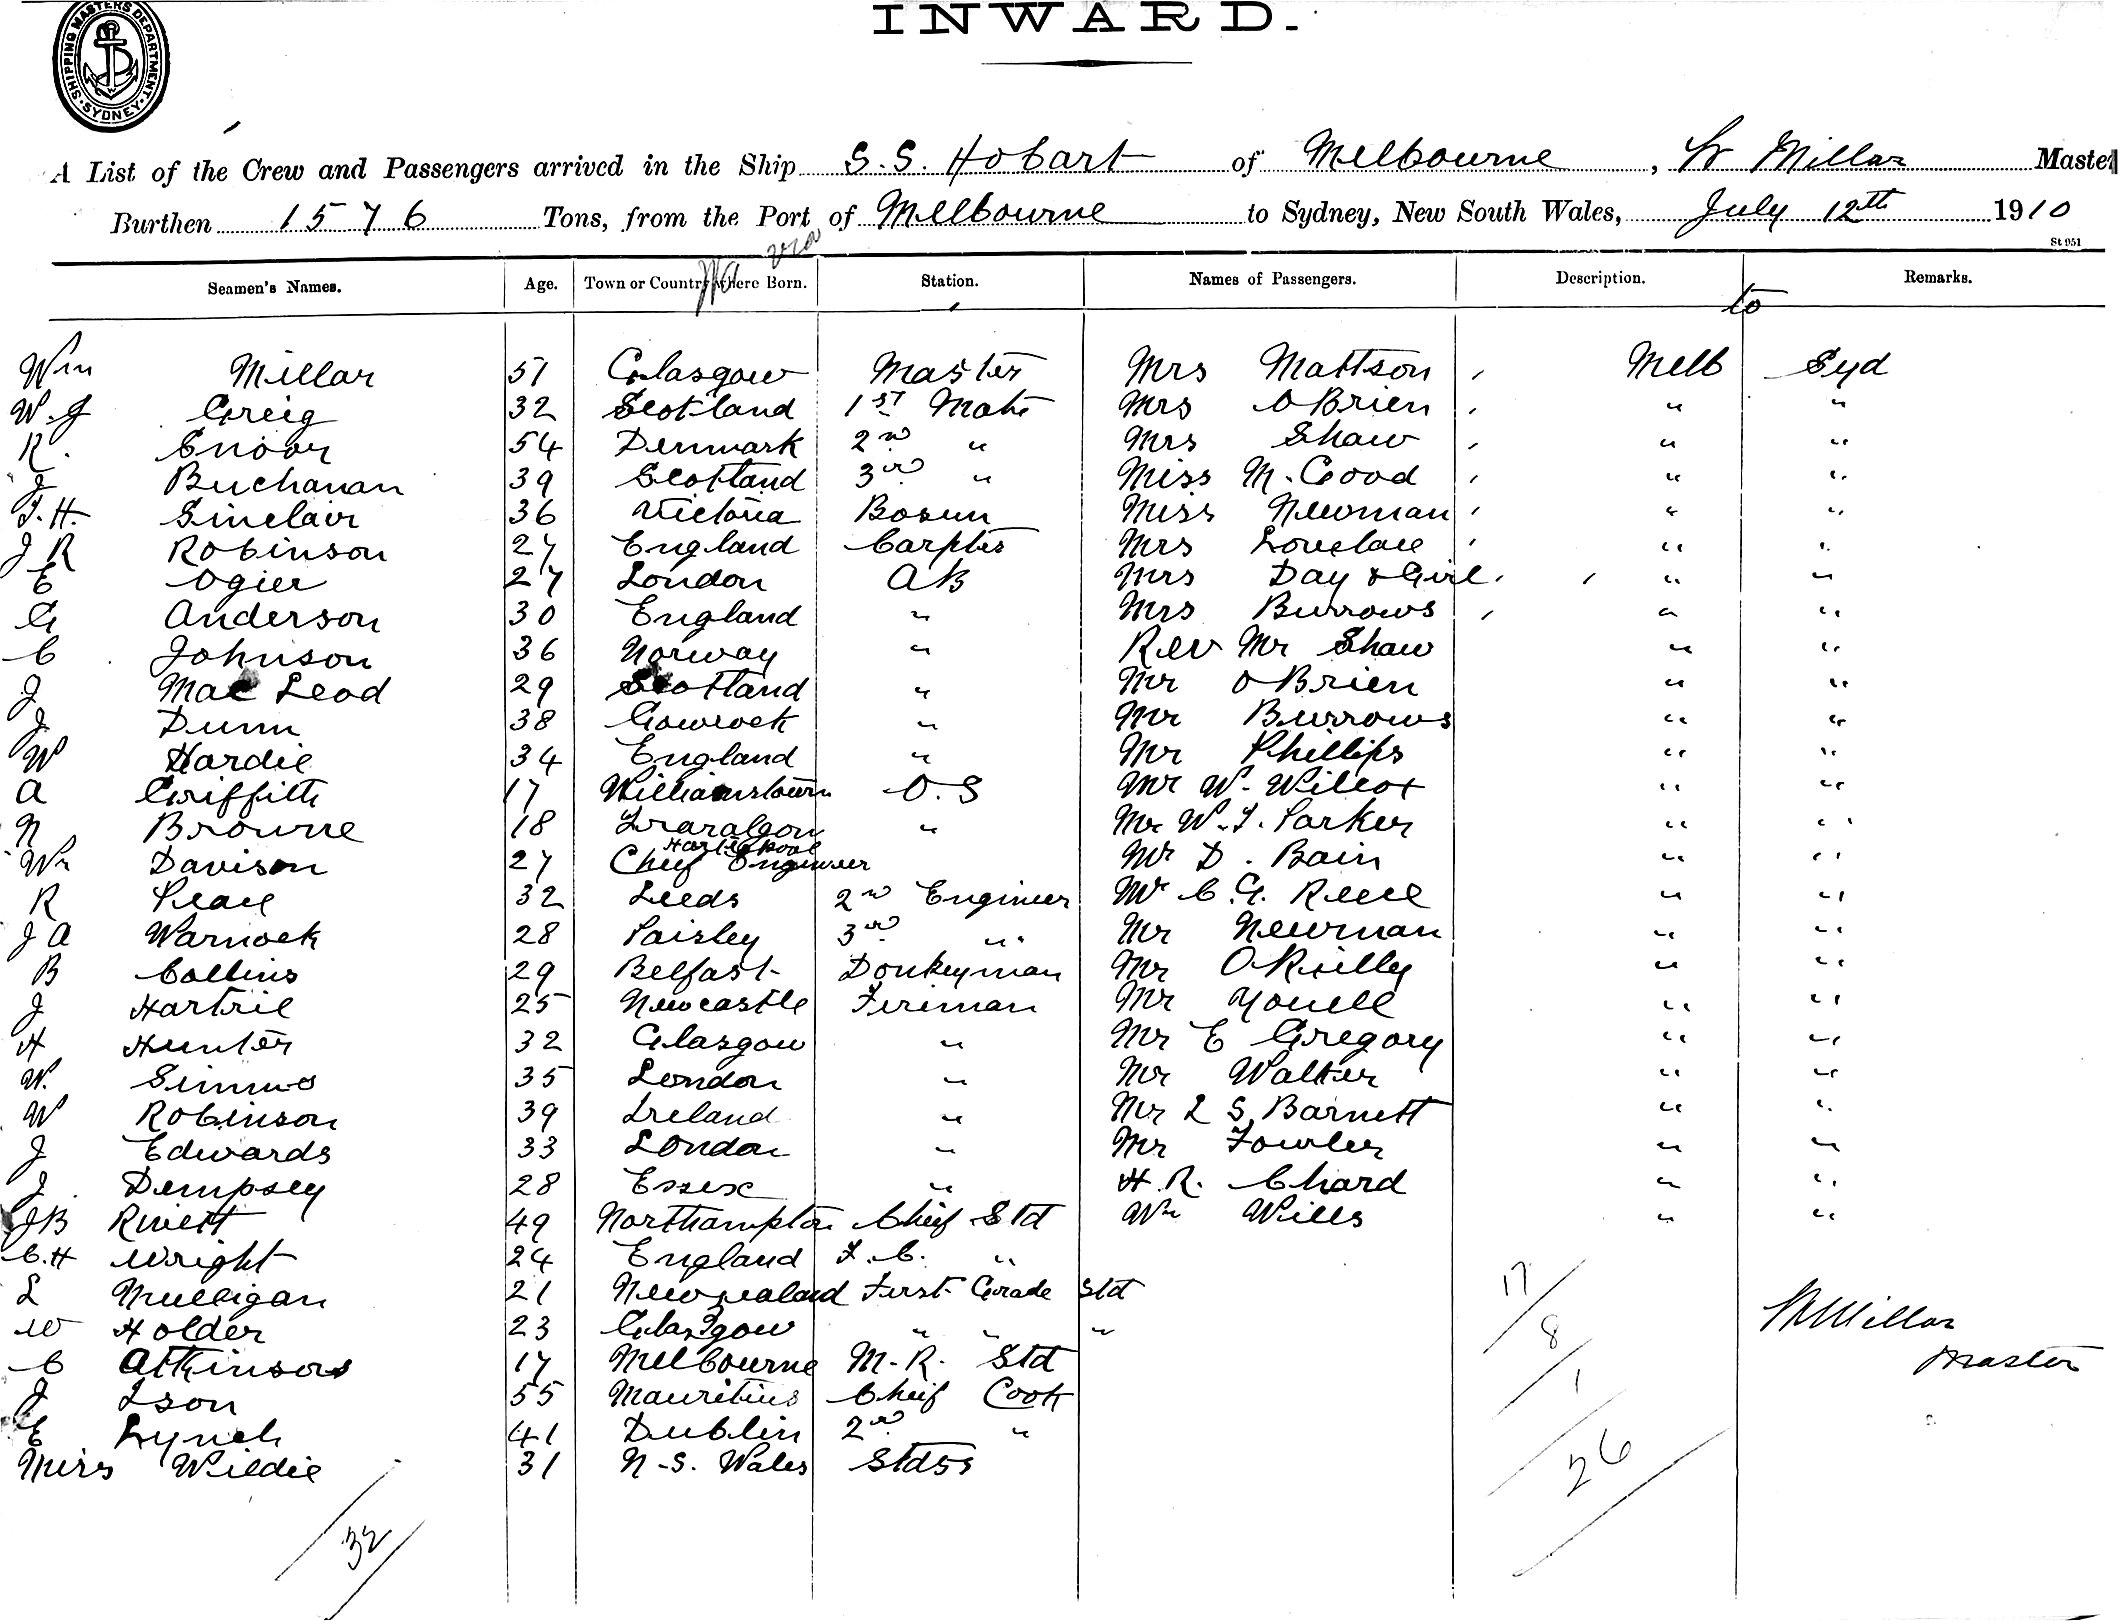 SHIPPING MASTERS DEPARTMENT · SYDNEY ·
INWARD.
A List of the Crew and Passengers arrived in the Ship S.S. Hobart of Melbourne, W Millar Master
Burthen 1576 Tons, from the Port of Melbourne to Sydney, New South Wales, July 12th 1910
St 951
Seamen's Names. Age. Town or Country where Born. Station. Names of Passengers. Description. Remarks.
to
Wm Millar 51 Glasgow Master Mrs Mattson Melb Syd
W.J Greig 32 Scotland 1st Mate Mrs OBrien " "
R. Enoor 54 Denmark 2nd " Mrs Shaw " "
J Buchanan 39 Scotland 3rd " Miss M. Good " "
T.H. Sinclair 36 Victoria Bosun Miss Newman " "
J R Robinson 27 England Carpter Mrs Lovelace " "
E Ogier 27 London AB Mrs Day & Girl " "
G Anderson 30 England " Mrs Burrows " "
C Johnson 36 Norway " Rev Mr Shaw " "
J Mac Leod 29 Scotland " Mr OBrien " "
J Dunn 38 Gowrock " Mr Burrows " "
W Hardie 34 England " Mr Phillips " "
A Griffith 17 Williamstown O.S Mr W. Wilcox " "
N Browne 18 Traralgon " Mr W.T. Parker " "
Hartlepool
Wm Davison 27 Cheif Engineer Mr D. Bain " "
R Peace 32 Leeds 2nd Engineer Mr C.G. Reece " "
J A Warnock 28 Paisley 3rd " Mr Newman " "
B Collins 29 Belfast Donkeyman Mr OReilly " "
J Hartril 25 Newcastle Fireman Mr Youell " "
H Hunter 32 Glasgow " Mr E Gregory " "
W. Simms 35 London " Mr Walker " "
W Robinson 39 Ireland " Mr L S Barnett " "
J Edwards 33 London " Mr Fowler " "
J. Dempsey 28 Essex " H.R. Chard " "
JB Rivett 49 Northampton Cheif Std Wm Wills " "
C.H Wright 24 England F.C. "
L Mulligan 21 New Zealand First Grade Std 17
W Holder 23 Glasgow " " " 8 W Millar
C Atkinson 17 Melbourne M.R. Std Master
J Ison 55 Mauritius Cheif Cook 1
E Lynch 41 Dublin 2nd "
Miss Wildie 31 N.S. Wales Stdss 26
32